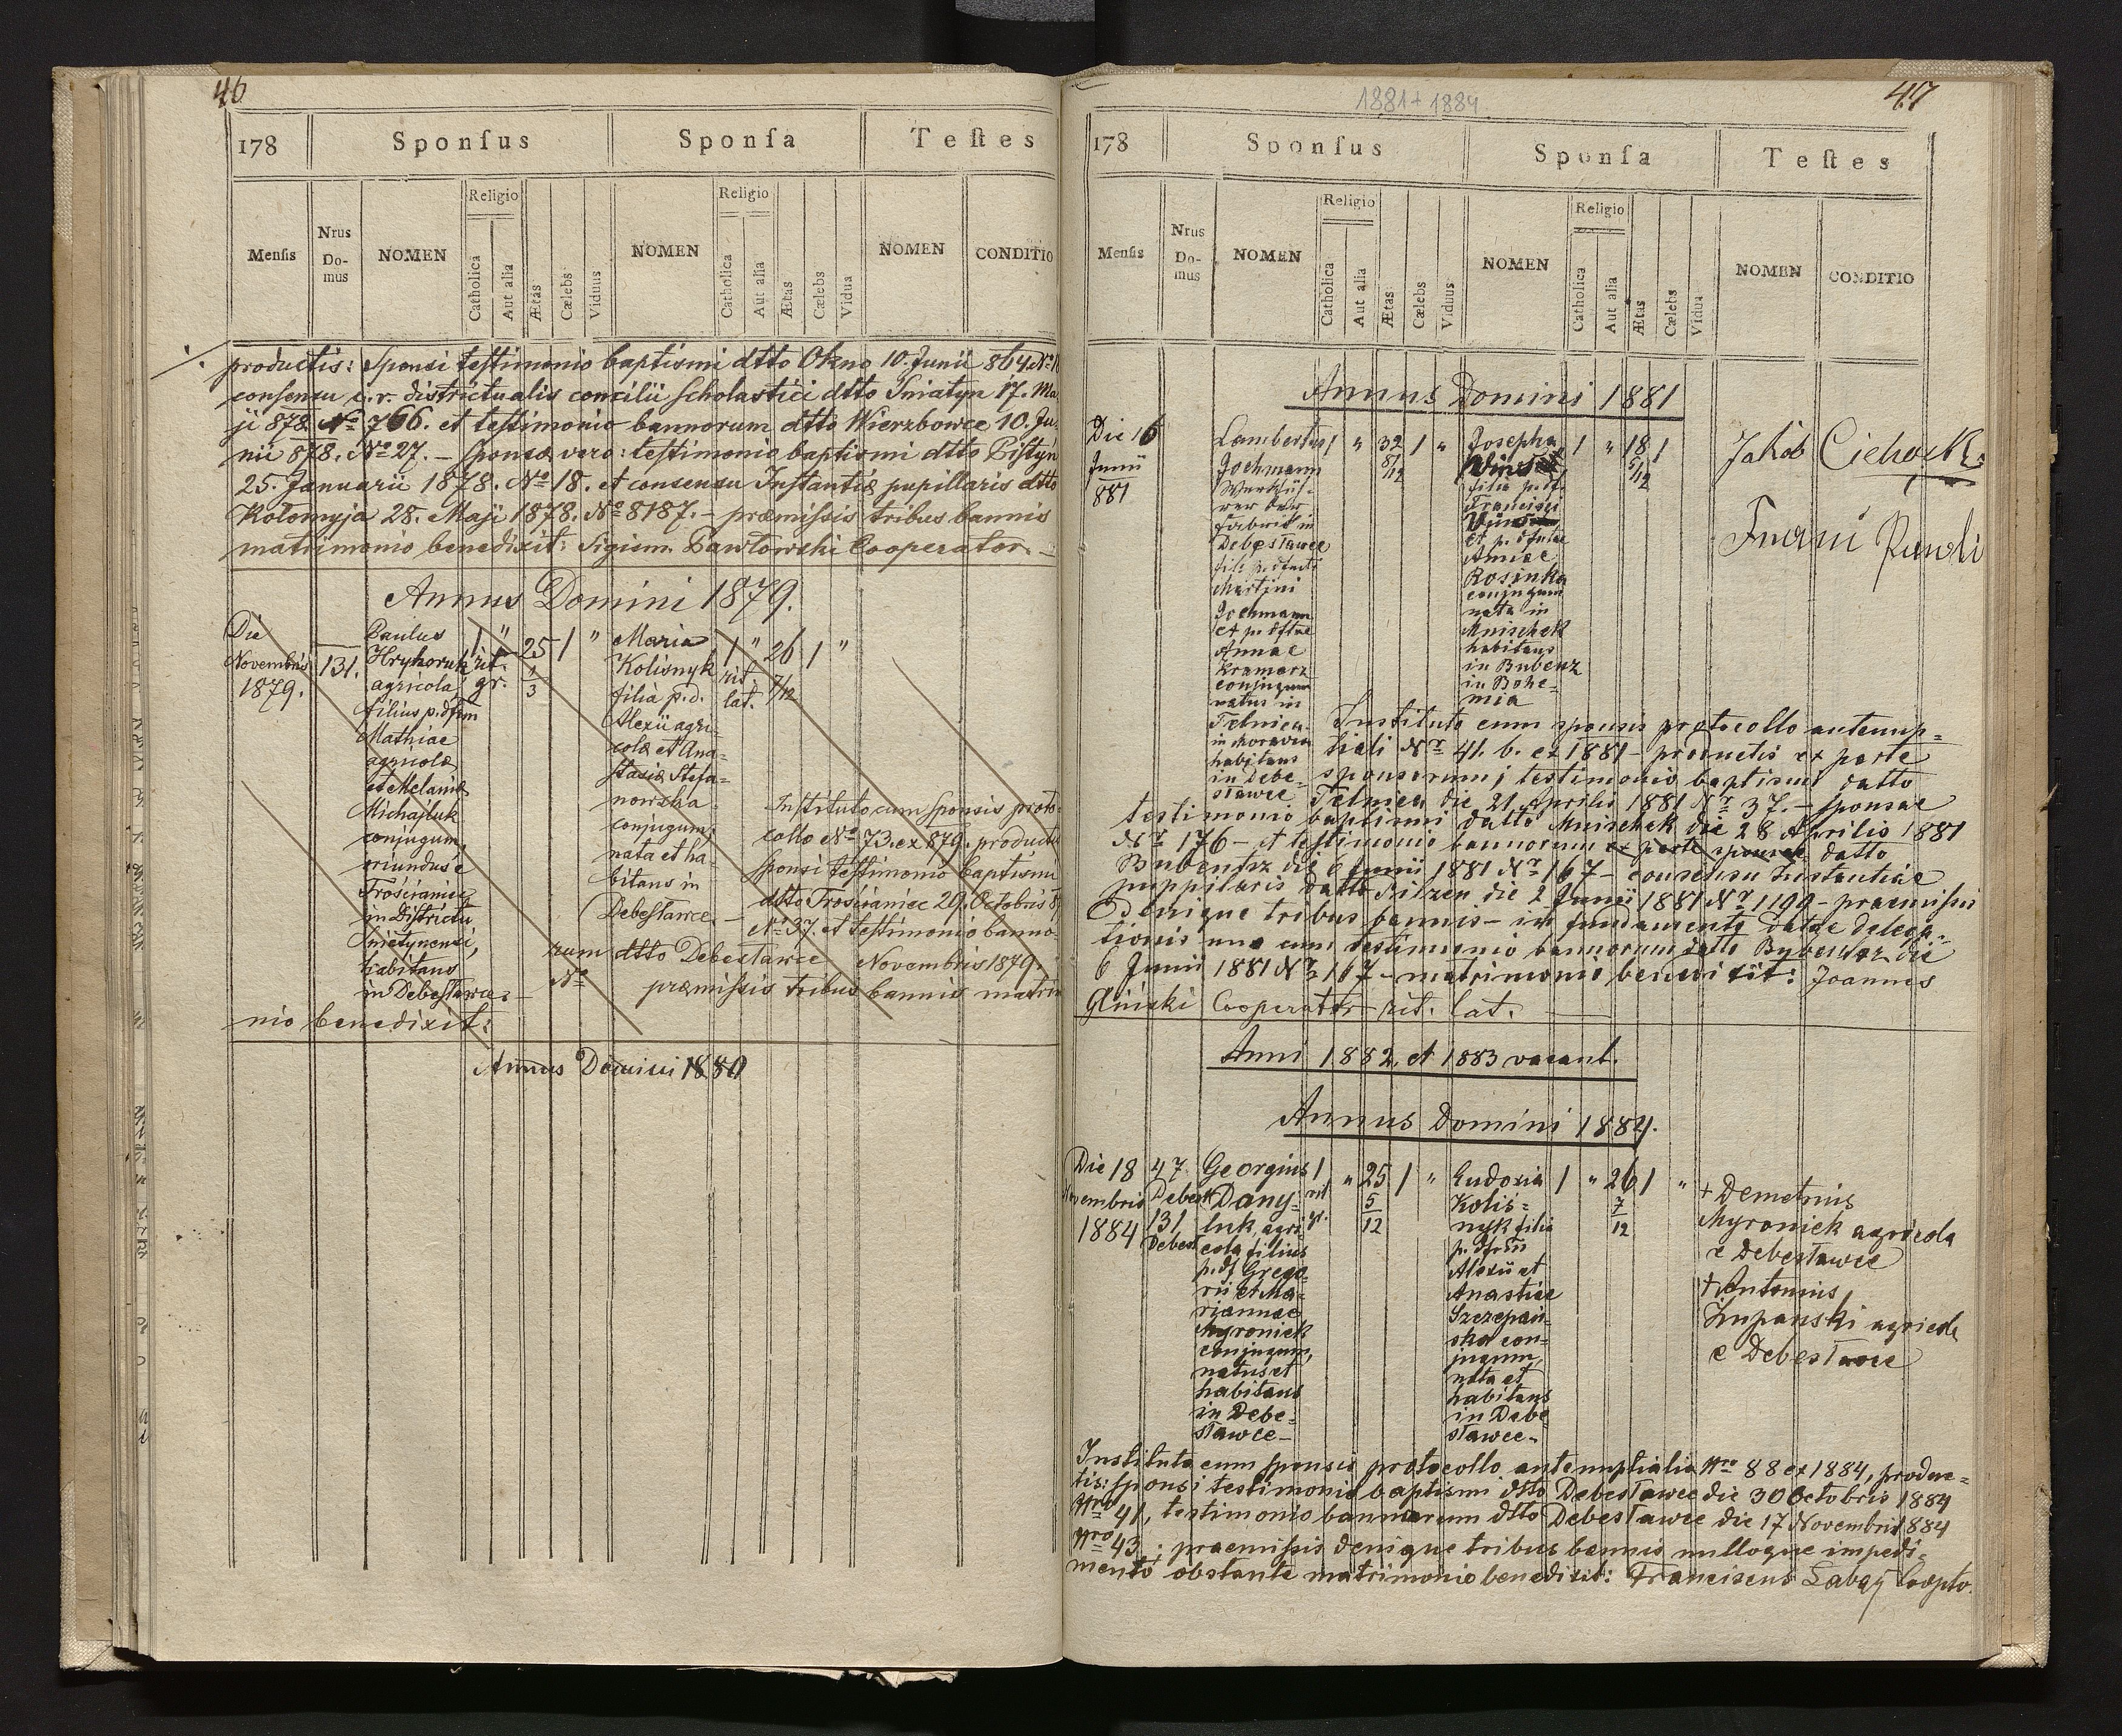 46
178 Sponſus Sponſa Teſtes
Menſis Nrus Domus NOMEN Religio Catholica Aut alia Ætas Cælebs Viduus NOMEN Religio Catholica Aut alia Ætas Cælebs Vidua NOMEN CONDITIO
productis: Sponsi testimonio baptismi dtto Okno 10. Junii 864. No
consensu c. r. districtualis concilii scholastici dtto Sniatyn 17. Ma
ji 878. No 766. et testimonio bannorum dtto Wierzbowce 10. Ju
nii 878. No 27. – Sponsæ vero: testimonio baptismi dtto Pistyń
25. Januarii 1878. No 18. et consensu Instantiæ pupillaris dtto
Kołomyja 28. Maji 1878. No 8187. – præmissis tribus bannis
matrimonio benedixit: Sigism. Pawłowski Cooperator. –
Annus Domini 1879.
Die
Novembris
1879.
131.
Paulus
Hryhoruk
agricola
filius p. dftm
Mathiae
agricolæ
et Melaniæ
Michajluk
conjugum,
oriundus e
Trościaniec
in Districtu
Sniatynensi,
habitans
in Debesławce. –
1 "
rit.
gr.
25 1 "
1
3
Maria
Kolisnyk
filia p. d.
Alexii agri=
colæ et Ana=
stasiæ Stefa=
nowska
conjugum,
nata et ha=
bitans in
Debesławce. –
1 " 26 1 "
rit. 7/12
lat.
Instituto cum sponsis proto=
collo No 73. ex 879. productis
sponsi testimonio baptismi
dtto Trościaniec 29. Octobris 8
No 37. et testimonio banno=
rum dtto Debesławce Novembris 1879.
No præmissis tribus bannis matrim
nio benedixit:
Annus Domini 1880
47
1881 + 1884
178 Sponſus Sponſa Teſtes
Menſis Nrus Domus NOMEN Religio Catholica Aut alia Ætas Cælebs Viduus NOMEN Religio Catholica Aut alia Ætas Cælebs Vidua NOMEN CONDITIO
Annus Domini 1881
Die 16
Junii
881
Lambertus
Jochmann
Werkfüh-
rer der
Fabrik in
Debesławce
fil. p. dfncti
Martini
Jochmann
et p. dftae
Annae
Kramarz
conjugum
natus in
Telnica
in Moravia
habitans
in Debe=
sławce
1 " 32 1 "
8/12
Josepha
filia p. d.
Francisci
et p. dfnctae
Annae
Rosinka
conjugum
nata in
Mnischek
habitans
in Bubenz
in Bohe=
mia
1 " 18 1
5/12
Jakób Cichocki
Instituto cum sponsis protocollo antenup=
tiali Nr 41. b. ex 1881 – productis ex parte
sponsorum; testimonio baptismi datto
Telnica die 21 Aprilis 1881 Nr 37. – sponsae
testimonio baptismi datto Mnischek die 28 Aprilis 1881
Nr 176 – et testimonio bannorum ex parte sponsae datto
Bubentz die 6 Junii 1881 Nr 167 – consensu Instantiae
puppilaris datto Pilzen die 2 Junii 1881 Nr 1199 – praemissis
denique tribus bannis – in fundamento datae delega=
tionis una cum testimonio bannorum datto Bubentz die
6 Junii 1881 Nr 167 – matrimonio benedixit: Joannes
Gliński Cooperator rit. lat.
Anni 1882, et 1883 vacant.
Annus Domini 1884.
Die 18
Novembris
1884
47
Debesł
131
Debesł
Georgius
Dany=
luk, agri
cola filius
p. df Grego=
rii et Ma=
riannae
Myroniek
conjugum,
natus et
habitans
in Debe=
sławce –
1 " 25 1 "
rit 5
gr. 12
Eudoxia
Kolis=
nyk filia
p. dftm
Alexii et
Anastiæ
Szczepań=
ska con=
jugum,
nata et
habitans
in Debe
sławce –
1 " 26 1 "
7
12
+ Demetrius
Myroniek agricola
e Debesławce
+ Antonius
Zupanski agricola
e Debesławce
Instituto cum sponsis protocollo antenuptiali Nro 88 ex 1884, produc=
tis: sponsi testimonio baptismi dtto Debesławce die 30 Octobris 1884
Nro 41, testimonio bannorum dtto Debesławce die 17 Novembris 1884
Nro 43. ; praemissis denique tribus bannis nulloque impedi=
mento obstante matrimonio benedixit: Franciscus Łabaj Coopto.